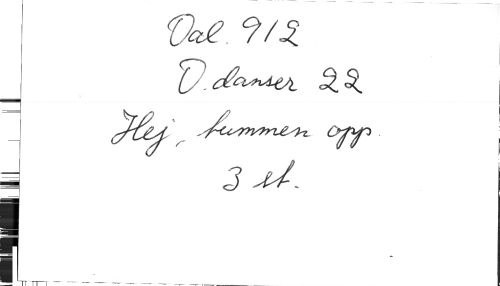 Dal. 912
D. danser 22
Hej, tummen opp.
3 st.